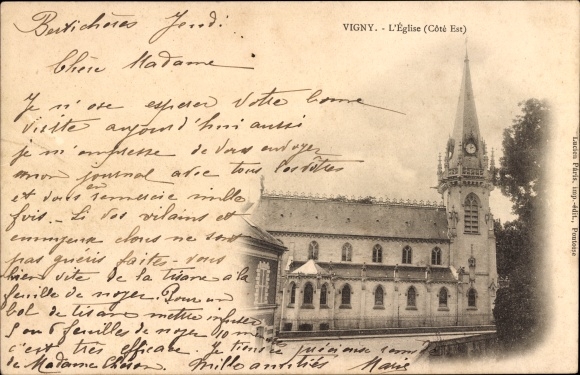 VIGNY. - L'Église (Côté Est)
Berticheres Jeudi
Chère Madame
Je n'ose espérer votre bonne
visite aujourd'hui aussi
je m'empresse de vous envoyer
mon journal avec tous les vôtres
et vous en remercie mille
fois. - Si des vilains et
ennuyeux clous ne sont
pas guéris faites-vous
bien vite de la tisane à la
feuille de noyer. Pour un
bol de tisane mettre infuser
5 ou 6 feuilles de noyer
c'est très efficace. Je trouve précieuse
de Madame Chéron. Mille amitiés Marie
Lucien Pâris, imp.-édit., Pontoise